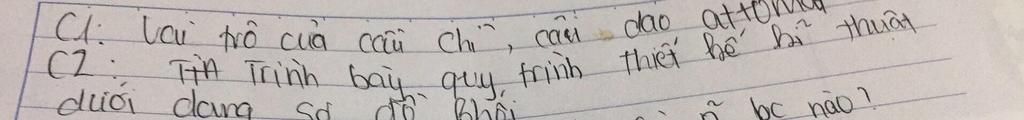 C1: Vai trò của cầu chì, cầu dao attomat
C2: Trình bày quy trình thiết kế kĩ thuật
dưới dạng sơ đồ khối
bc nào?